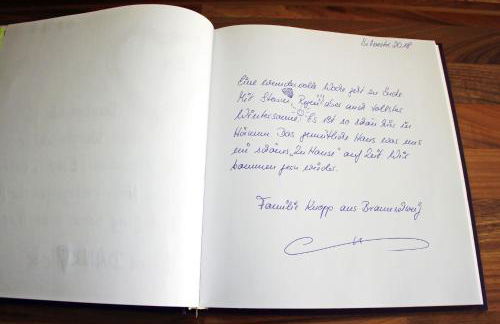 Silvester 2018
Eine wundervolle Woche geht zu Ende
Mit Sturm, Regen aber auch vollster
Wintersonne. Es ist so schön hier in
Das gemütliche Haus war uns
ein schönes „Zu Hause“ auf Zeit. Wir
kommen gern wieder.
Familie Knopp aus Braunschweig